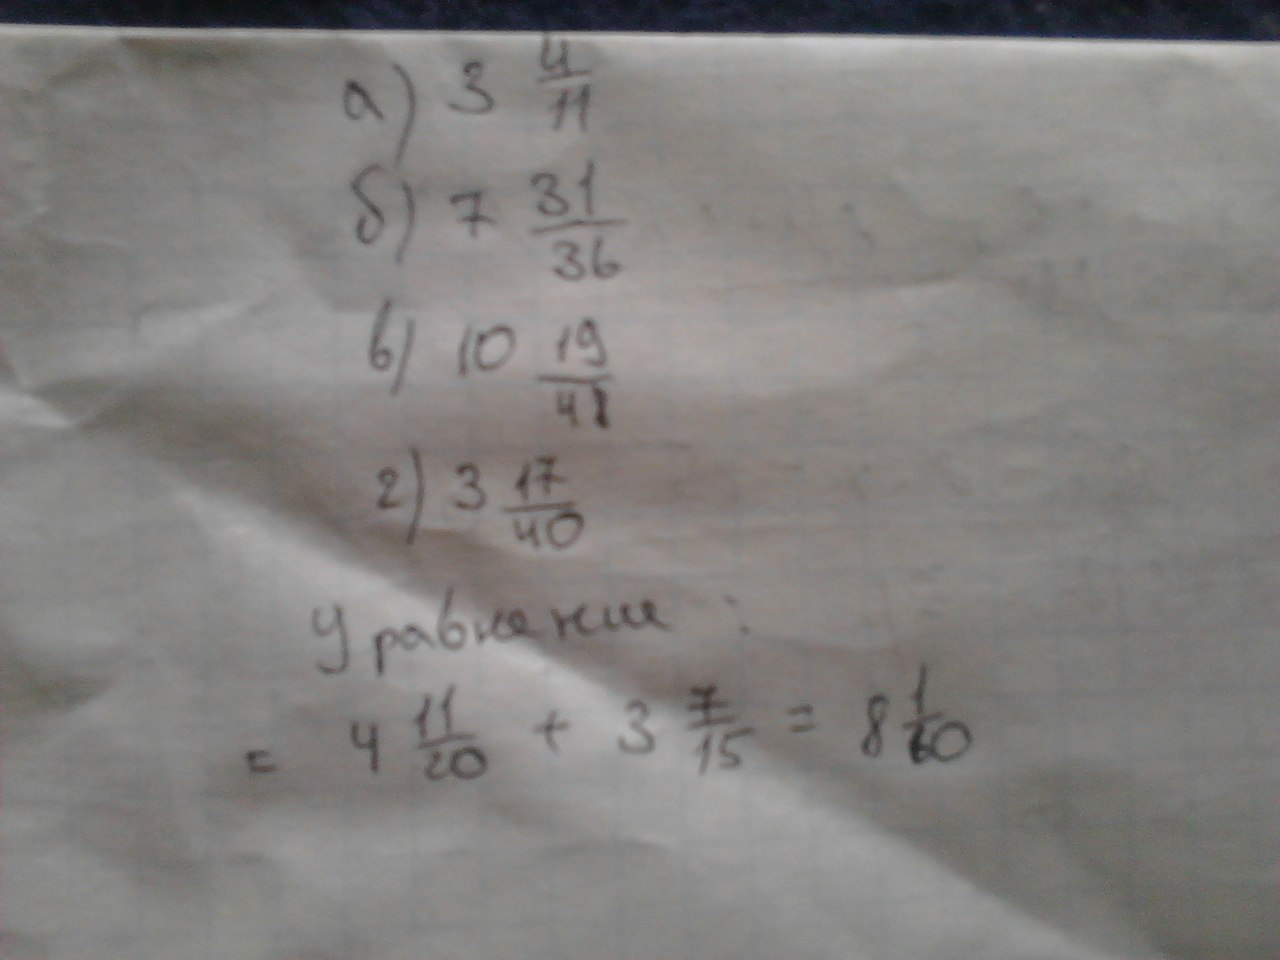 а) 3 4/11
б) 7 31/36
в) 10 19/48
г) 3 17/40
Уравнение :
= 4 11/20 + 3 7/15 = 8 1/60